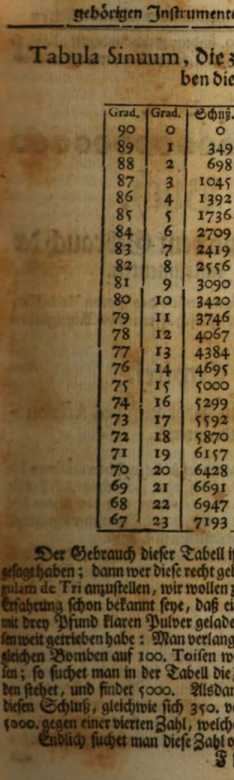 gehörigen Instrumente
Tabula Sinuum, die
ben die
Grad. Grad. Schuß.
90 0 0
89 1 349
88 2 698
87 3 1045
86 4 1392
85 5 1736
84 6 2709
83 7 2419
82 8 2556
81 9 3090
80 10 3420
79 11 3746
78 12 4067
77 13 4384
76 14 4695
75 15 5000
74 16 5299
73 17 5592
72 18 5870
71 19 6157
70 20 6428
69 21 6691
68 22 6947
67 23 7193
Der Gebrauch dieser Tabell
gesagt haben; dann wer diese recht
de Tri anzustellen, wir wollen
Erfahrung schon bekannt seye, daß
mit drey Pfund klaren Pulver
weit getrieben habe: Man
gleichen Bomben auf 100. Toisen
so suchet man in der Tabell die
den stehet, und findet 5000.
diesen Schluß, gleichwie sich 350.
5000. gegen einer vierten Zahl,
Endlich suchet man diese Zahl